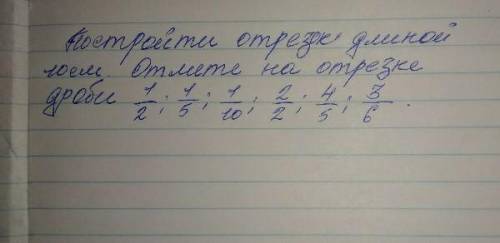 Постройти отрезок длиной
10см. Отмете на отрезке
дроби 1/2; 1/5; 1/10; 2/2; 4/5; 3/6.